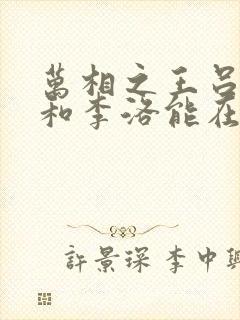 萬相之王呂
和李洛能在
許景琛 李中興